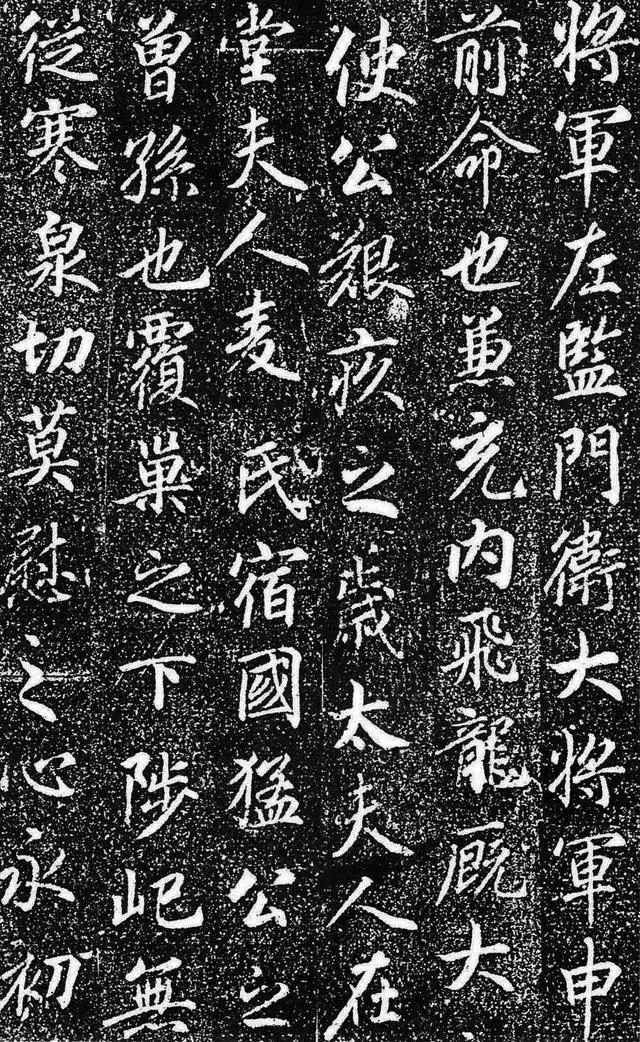 將軍左監門衛大將軍申
前命也兼充內飛龍廄大
使公艱疚之歲太夫人在
堂夫人麦氏宿國猛公之
曽孫也覆巢之下陟屺無
從寒泉切莫慰之心永初